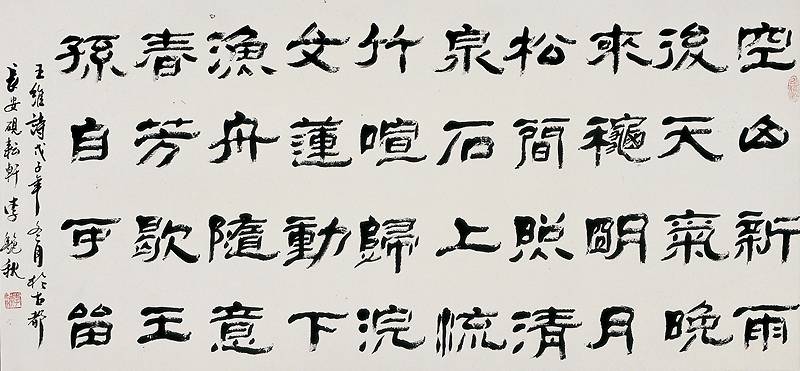 空山新雨
後天氣晚
來龝明月
松間照清
泉石上流
竹喧歸浣
女蓮動下
漁舟隨意
春芳歇王
孫自可留
王維詩戊子年冬月於古都
長安硯耘軒李秋